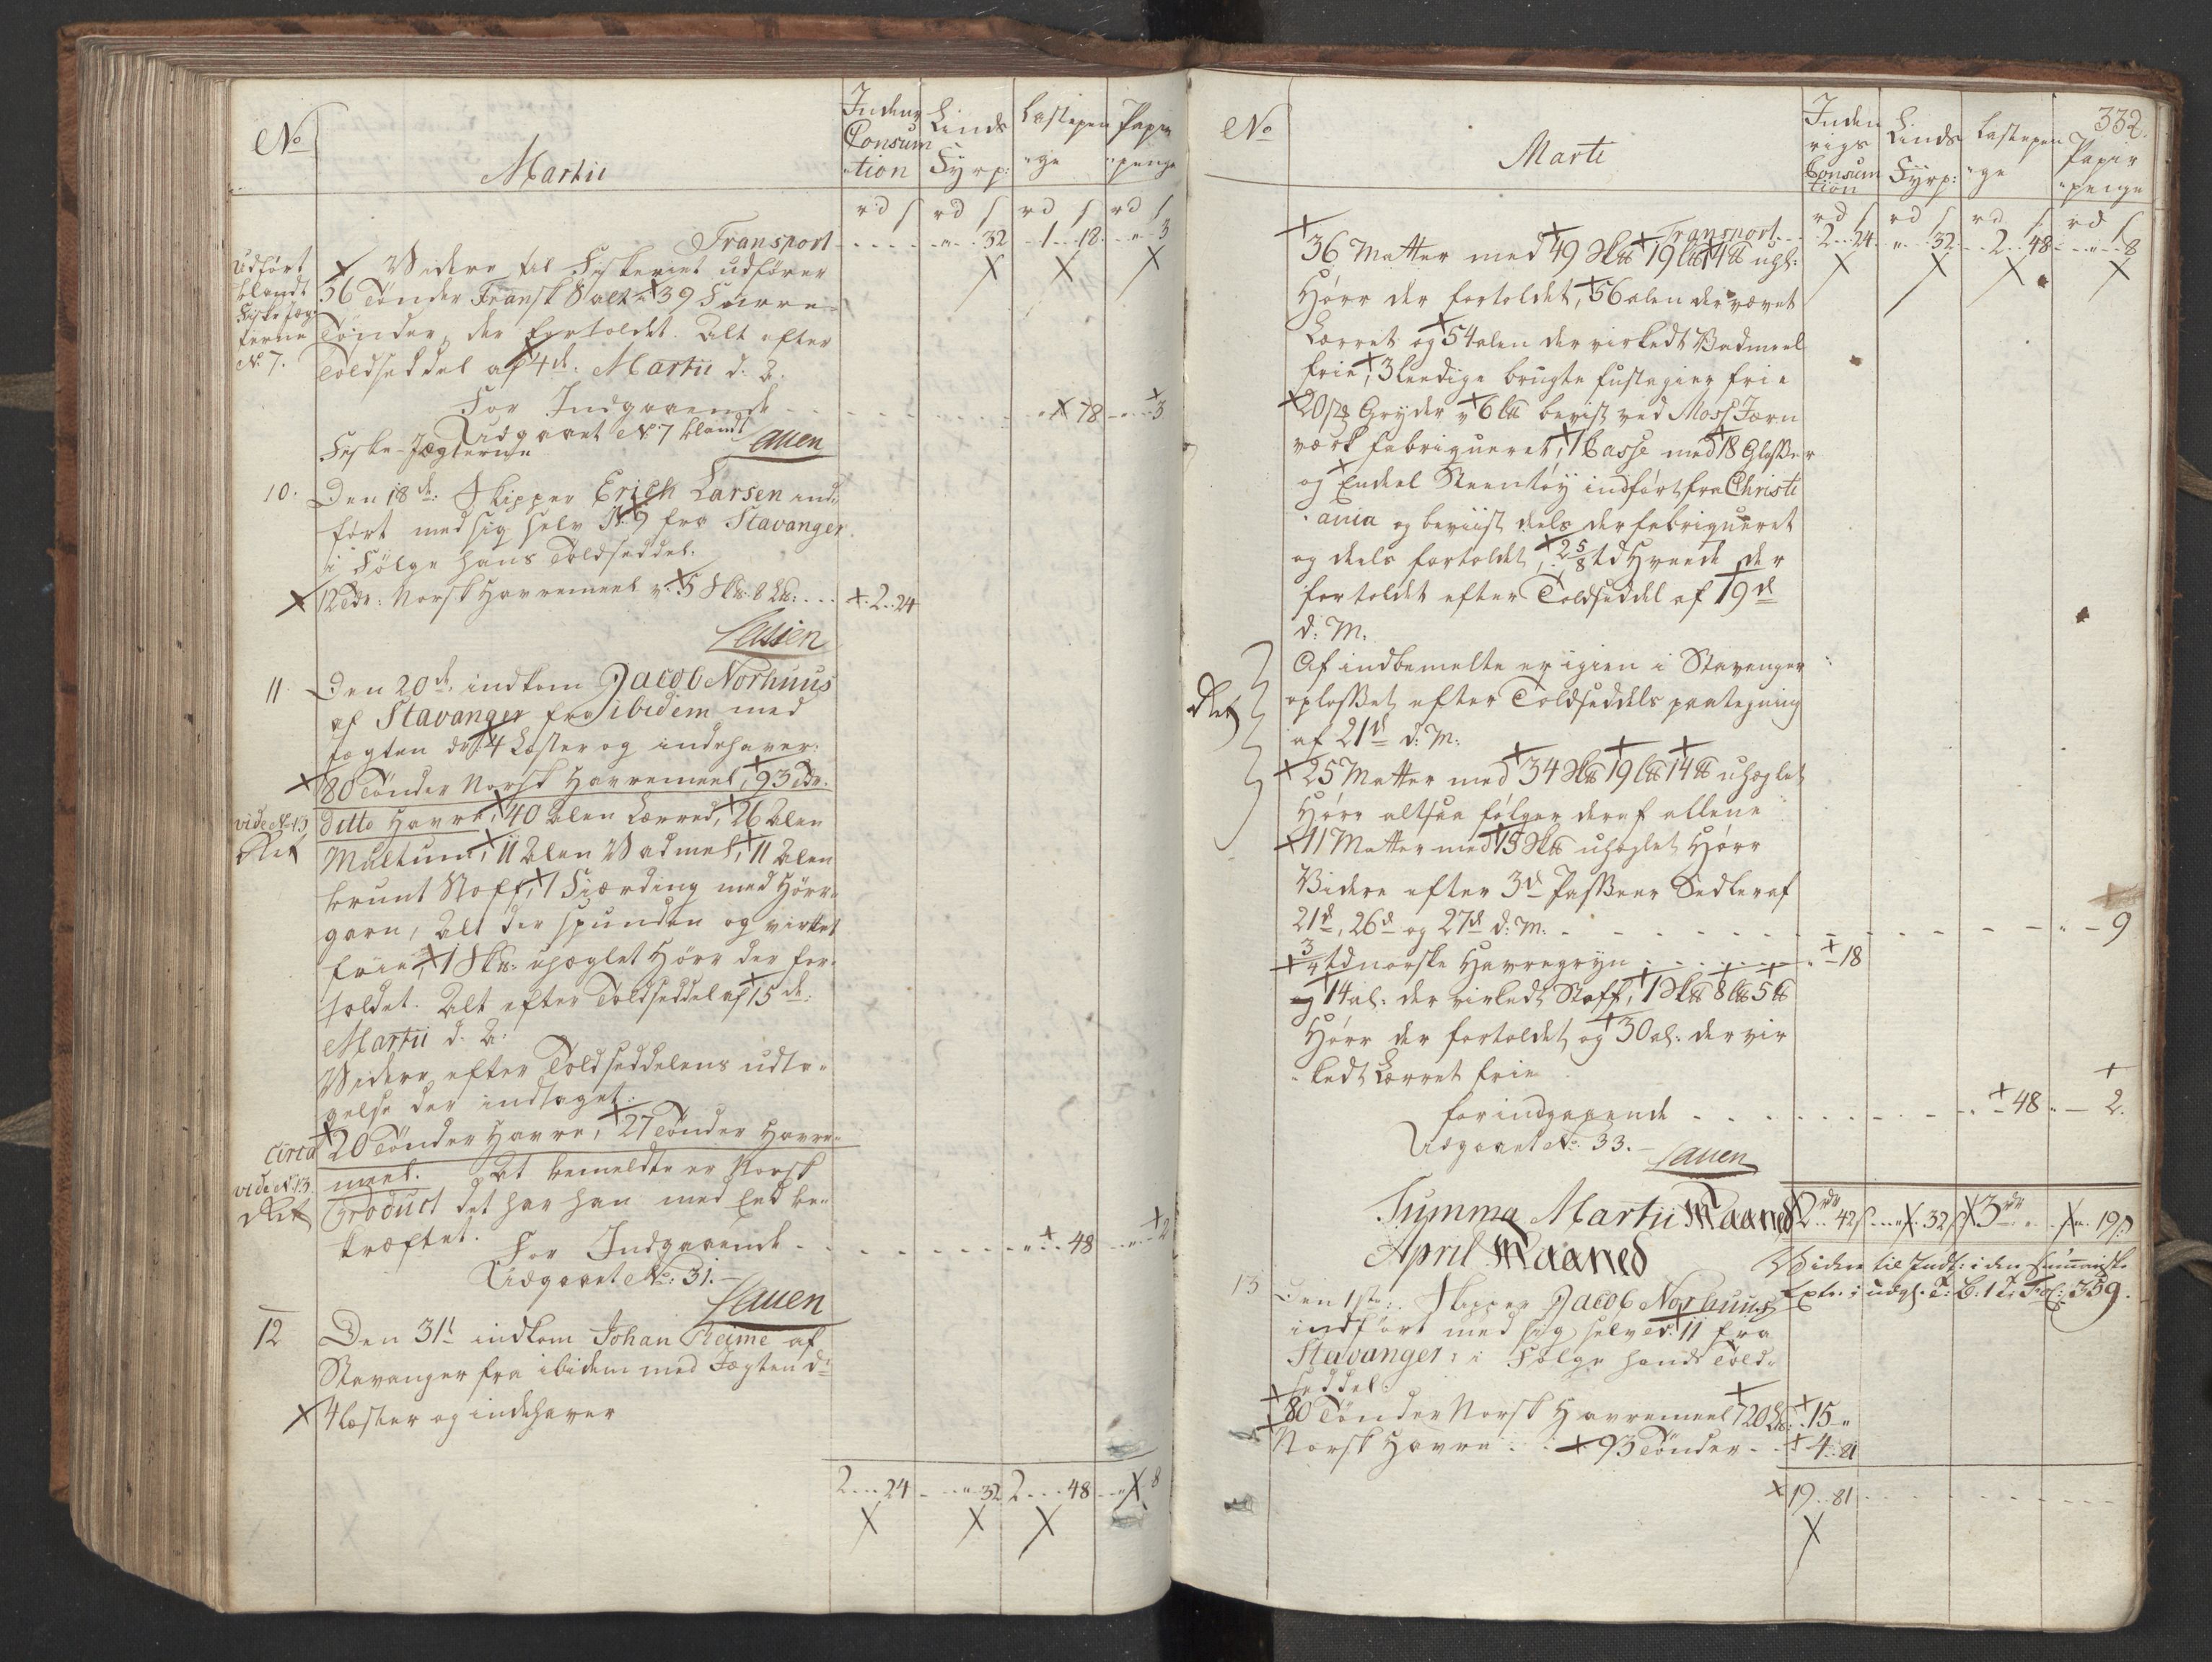 No
Martii
Indenr
Consum
tion
Linds
Fyrp:
Lastepen
ge
Papir
penge
rd s rd s rd s rd s
Transport - - - - - " - 32 - 1 - 18 - " - 3
Udført
blandt
Fiske Jæg
terne
N. 7.
Videre til Fiskeriet udfører
36 Tønder Fransk Salt, 39 Furre
Tønder, der fortoldet. Alt efter
Toldseddel af 4de Martii d. A.
For Indgaaende - - - - 78 - - 3
Udgaaet N. 7 blandt
Fiske-Jægterne
Lauen
10. Den 18de: Skipper Erich Larsen ind
ført med sig selv N. 9 fra Stavanger
i Følge hans Toldseddel.
12 Tdr: Norsk Havremeel v. 5 Sk℔ 8 L℔: . . . 2 . . 24
Lauen
11. Den 20de indkom Jacob Norhuus
af Stavanger fra ibidem med
Jægten dr: 4 Læster og indehaver:
80 Tønder Norsk Havremeel, 93 Tdr.
vide N. 13
ditto Havre, 40 Alen Lærred, 26 Alen
Multum, 11 Alen Vadmel, 11 Alen
brunt Stoff, 1 Fiærding med Hørr
garn, Alt der spunden og virket
frie, 1 Sk℔: uheglet Hørr der for
toldet. Alt efter Toldseddel af 15de:
Martii d. A:
Videre efter Toldseddelens udta
gelse der indtaget:
circa 20 Tønder Havre, 27 Tønder Havre
vide N. 13.
meel. At bemeldte er Norsk
Product det har han med Eed be
kræftet.
For Indgaaende - - - - - - " - 48 - " - 2
Udgaaet No: 31.
Lauen
12 Den 31t indkom Johan Reime af
Stavanger fra ibidem med Jægten dr
4 læster og indehaver
2 - - 24 - - " - 32 2 - - - 48 - " - 8
332.
No
Marti
Inden
rigs
Consum
tion
Linds
Fyrp:
Lastepen
ge
Papir
penge
rd s rd s rd s rd s
Transport - - 2 - 24 - " - 32 - - 2 - 48 - " - 8
36 Matter med 49 Sk℔ 19 L℔ 4 ℔ uhl:
Hørr der fortoldet, 56 alen der vævet
Lærret og 54 alen der virkedt Vadmeel
frie, 3 leedige brugte fustagier frie
20 st Gryder v 6 L℔ beviist ved Moss Jærn
værk fabriqueret, 1 Casse med 18 Glasser
og Endeel Steentøy indført fra Christi
ania og beviist deels der fabriqueret
og deels fortoldet, 2 5/8 td Hveede der
fortoldet efter Toldseddel af 19de
d: M:
Af indbemelte er igien i Stavanger
oplosset efter Toldseddels paategning
af 21d d: M:
25 Matter med 34 Sk℔ 19 L℔ 14 ℔ uheglet
Hørr altsaa følger deraf allene
11 Matter med 15 Sk℔ uheglet Hørr
Videre efter 3de Passeer Sedler af
21d, 26d og 27d d: M: - - - - - - - - - - " - 9
3/4 td norske Havregryn . . . . . " - 18
og 14 al: der virkedt Stoff, 1 Sk℔ 8 L℔ 5 ℔
Hørr der fortoldet og 30 al: der vir
kedt Lærret frie
for indgaaende - - - - - - - " - 48 " - 2.
Udgaaet No: 33.
Lauen
Summa Martii Maaned 2 rdr 42 s - - " . 32 s 3 rdr " . - " . 19 s
April Maaned
Videre til Indt: i den
Expt: i udgl. T: B: 1 T: Fol: 359.
13 Den 1ste: Skipper Jacob Norhuus
indført med sig selv N. 11 fra
Stavanger; i Følge hands Told
seddel:
80 Tønder Norsk Havremeel 720 L℔: . 15 "
Norsk Havre . . . 93 Tønder - - 4 - 81
19 . . 81 - - - - - -